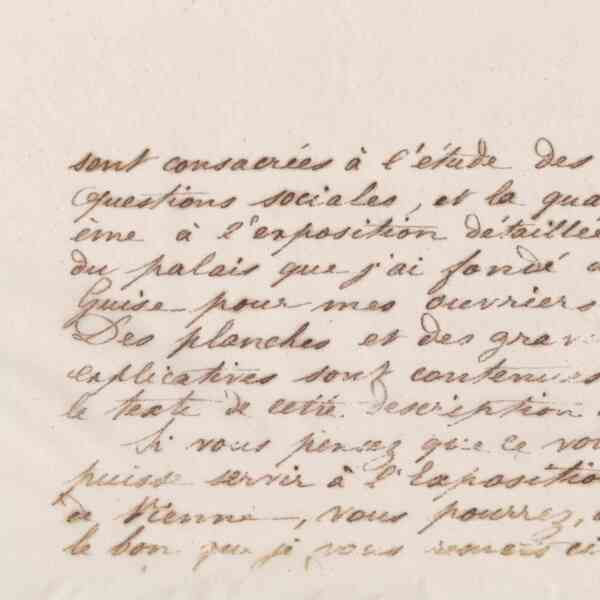 sont consacrées à l'étude des
questions sociales, et la qua
ème à l'exposition détaillée
du palais que j'ai fondé a
Guise pour mes ouvriers
Des planches et des grav
explicatives sont contenues
le texte de cette description
Si vous pensez que ce vou
puisse servir à l'Expositio
de Vienne, vous pourrez,
le bon que je vous remets ci